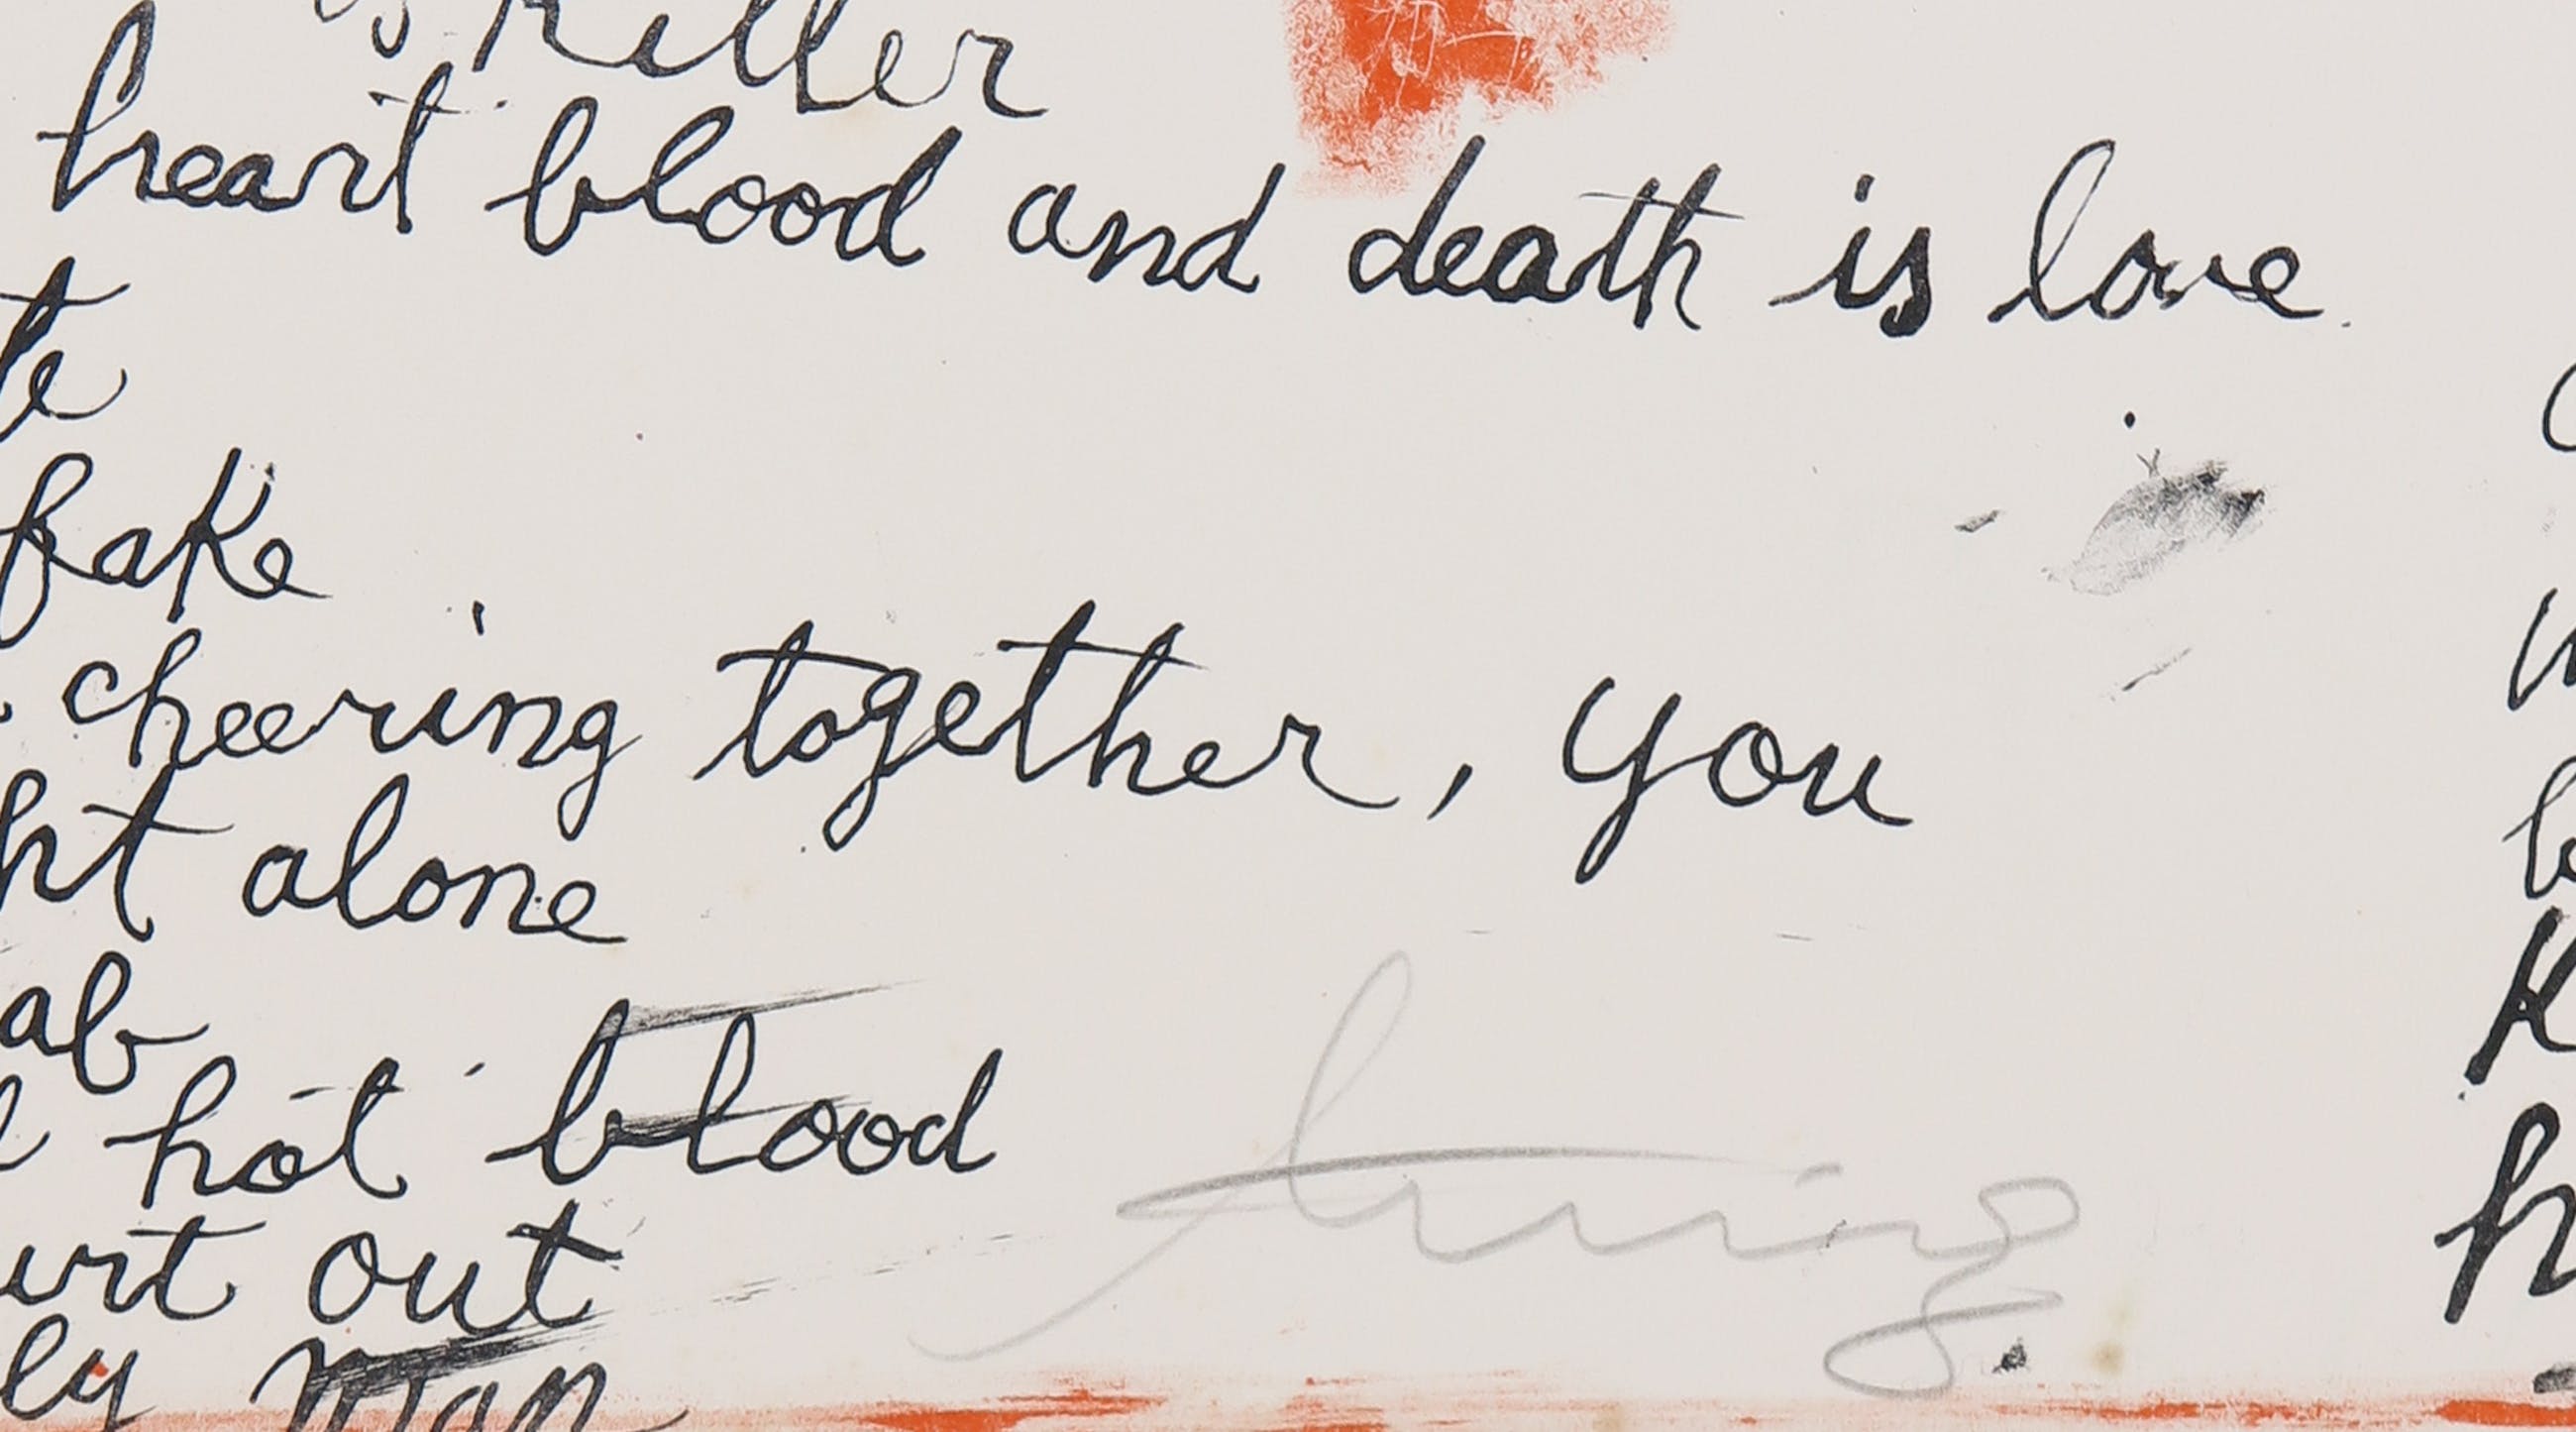 Killer
heart blood and death is love
te
fake
cheering together, you
ht alone
ab
hot blood
urt out
ly man